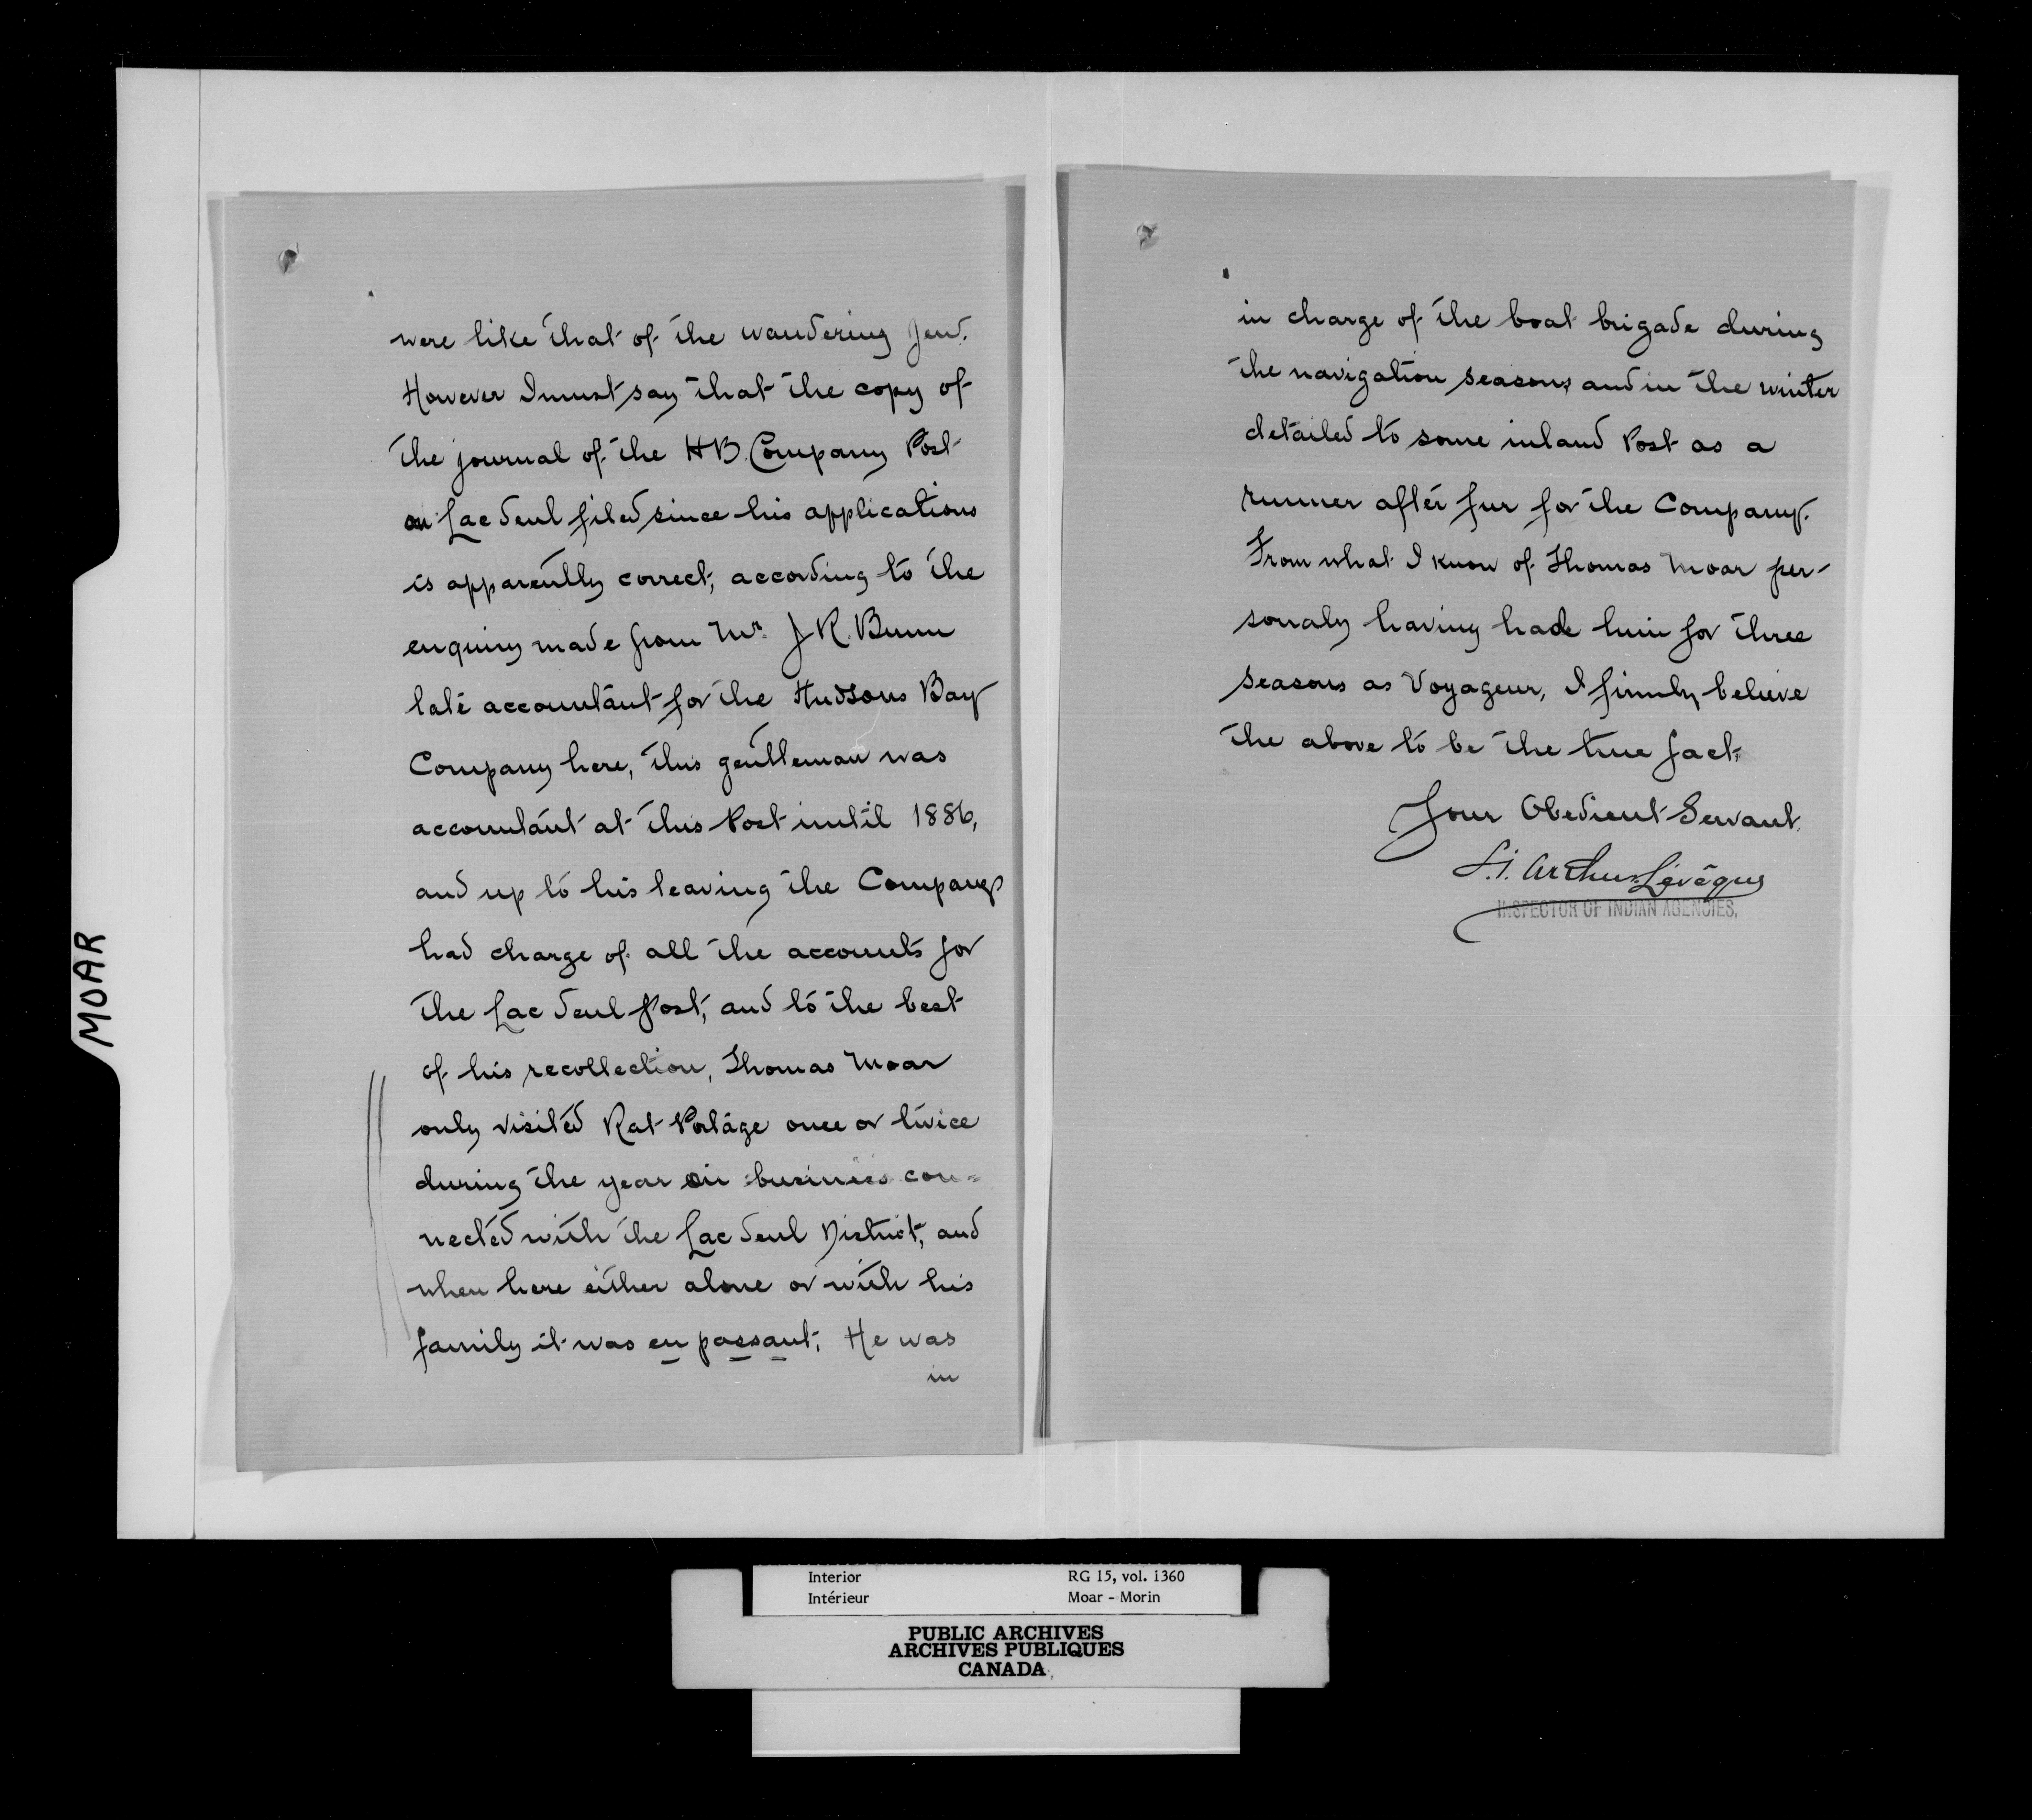 MOAR
were like that of the wandering Jew.
However I must say that the copy of
the journal of the H B. Company Post
on Lac Seul filed since his applications
is apparently correct, according to the
enquiry made from Mr. J R. Bunn
late accountant for the Hudsons Bay
Company here, this gentleman was
accountant at this Post until 1886,
and up to his leaving the Company
had charge of all the accounts for
the Lac Seul Post, and to the best
of his recollection, Thomas Moar
only visited Rat Portage once or twice
during the year on business con=
nected with the Lac Seul District, and
when here either alone or with his
family it was en passant, He was
in
in charge of the boat brigade during
the navigation seasons, and in the winter
detailed to some inland Post as a
runner after fur for the Company.
From what I know of Thomas Moar per-
sonaly having hade him for three
seasons as Voyageur, I firmly believe
the above to be the true fact.
Your Obedient Servant.
Arthur Levêque
INSPECTOR OF INDIAN AGENCIES.
Interior RG 15, vol. 1360
Intérieur Moar - Morin
PUBLIC ARCHIVES
ARCHIVES PUBLIQUES
CANADA